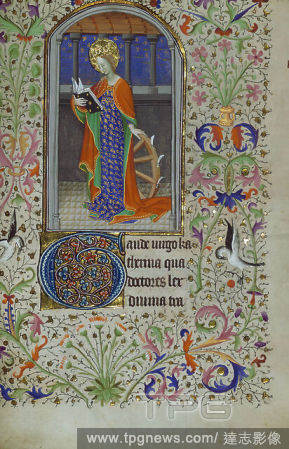 Gaude virgo ka
therina qua
doctores lex
divina tra
TPG
www.tpgnews.com/ 達志影像